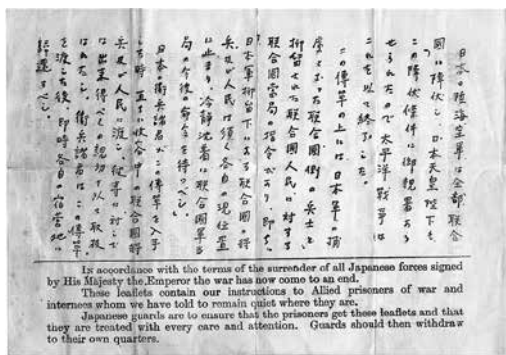 日本の陸海空軍は全部、聯合
國に降伏し、日本天皇陛下も
この降伏條件に御親署
せられたので太平洋戰爭は
これを以て終了した。
この傳單の上には、日本軍の捕
虜となった聯合國側の兵士と
抑留された聯合國人民に対する
聯合國當局の指令があり、即ち、
日本軍抑留下にある聯合國の将
兵及び人民は須く各自の現位置
に止まり、冷靜沈着に聯合國軍當
局の今後の命令を待つべし。
日本の衛兵諸君がこの傳單を入手
した時、直ちに收容中の聯合國将
兵及び人民に渡し、彼等に対して
は出來得べくの親切を以て取扱
はれたし。衛兵諸君はこの傳單
を渡した後、即時各自の宿営地に
歸還すべし。
In accordance with the terms of the surrender of all Japanese forces signed
by His Majesty the Emperor the war has now come to an end.
These leaflets contain our instructions to Allied prisoners of war and
internees whom we have told to remain quiet where they are.
Japanese guards are to ensure that the prisoners get these leaflets and that
they are treated with every care and attention. Guards should then withdraw
to their own quarters.